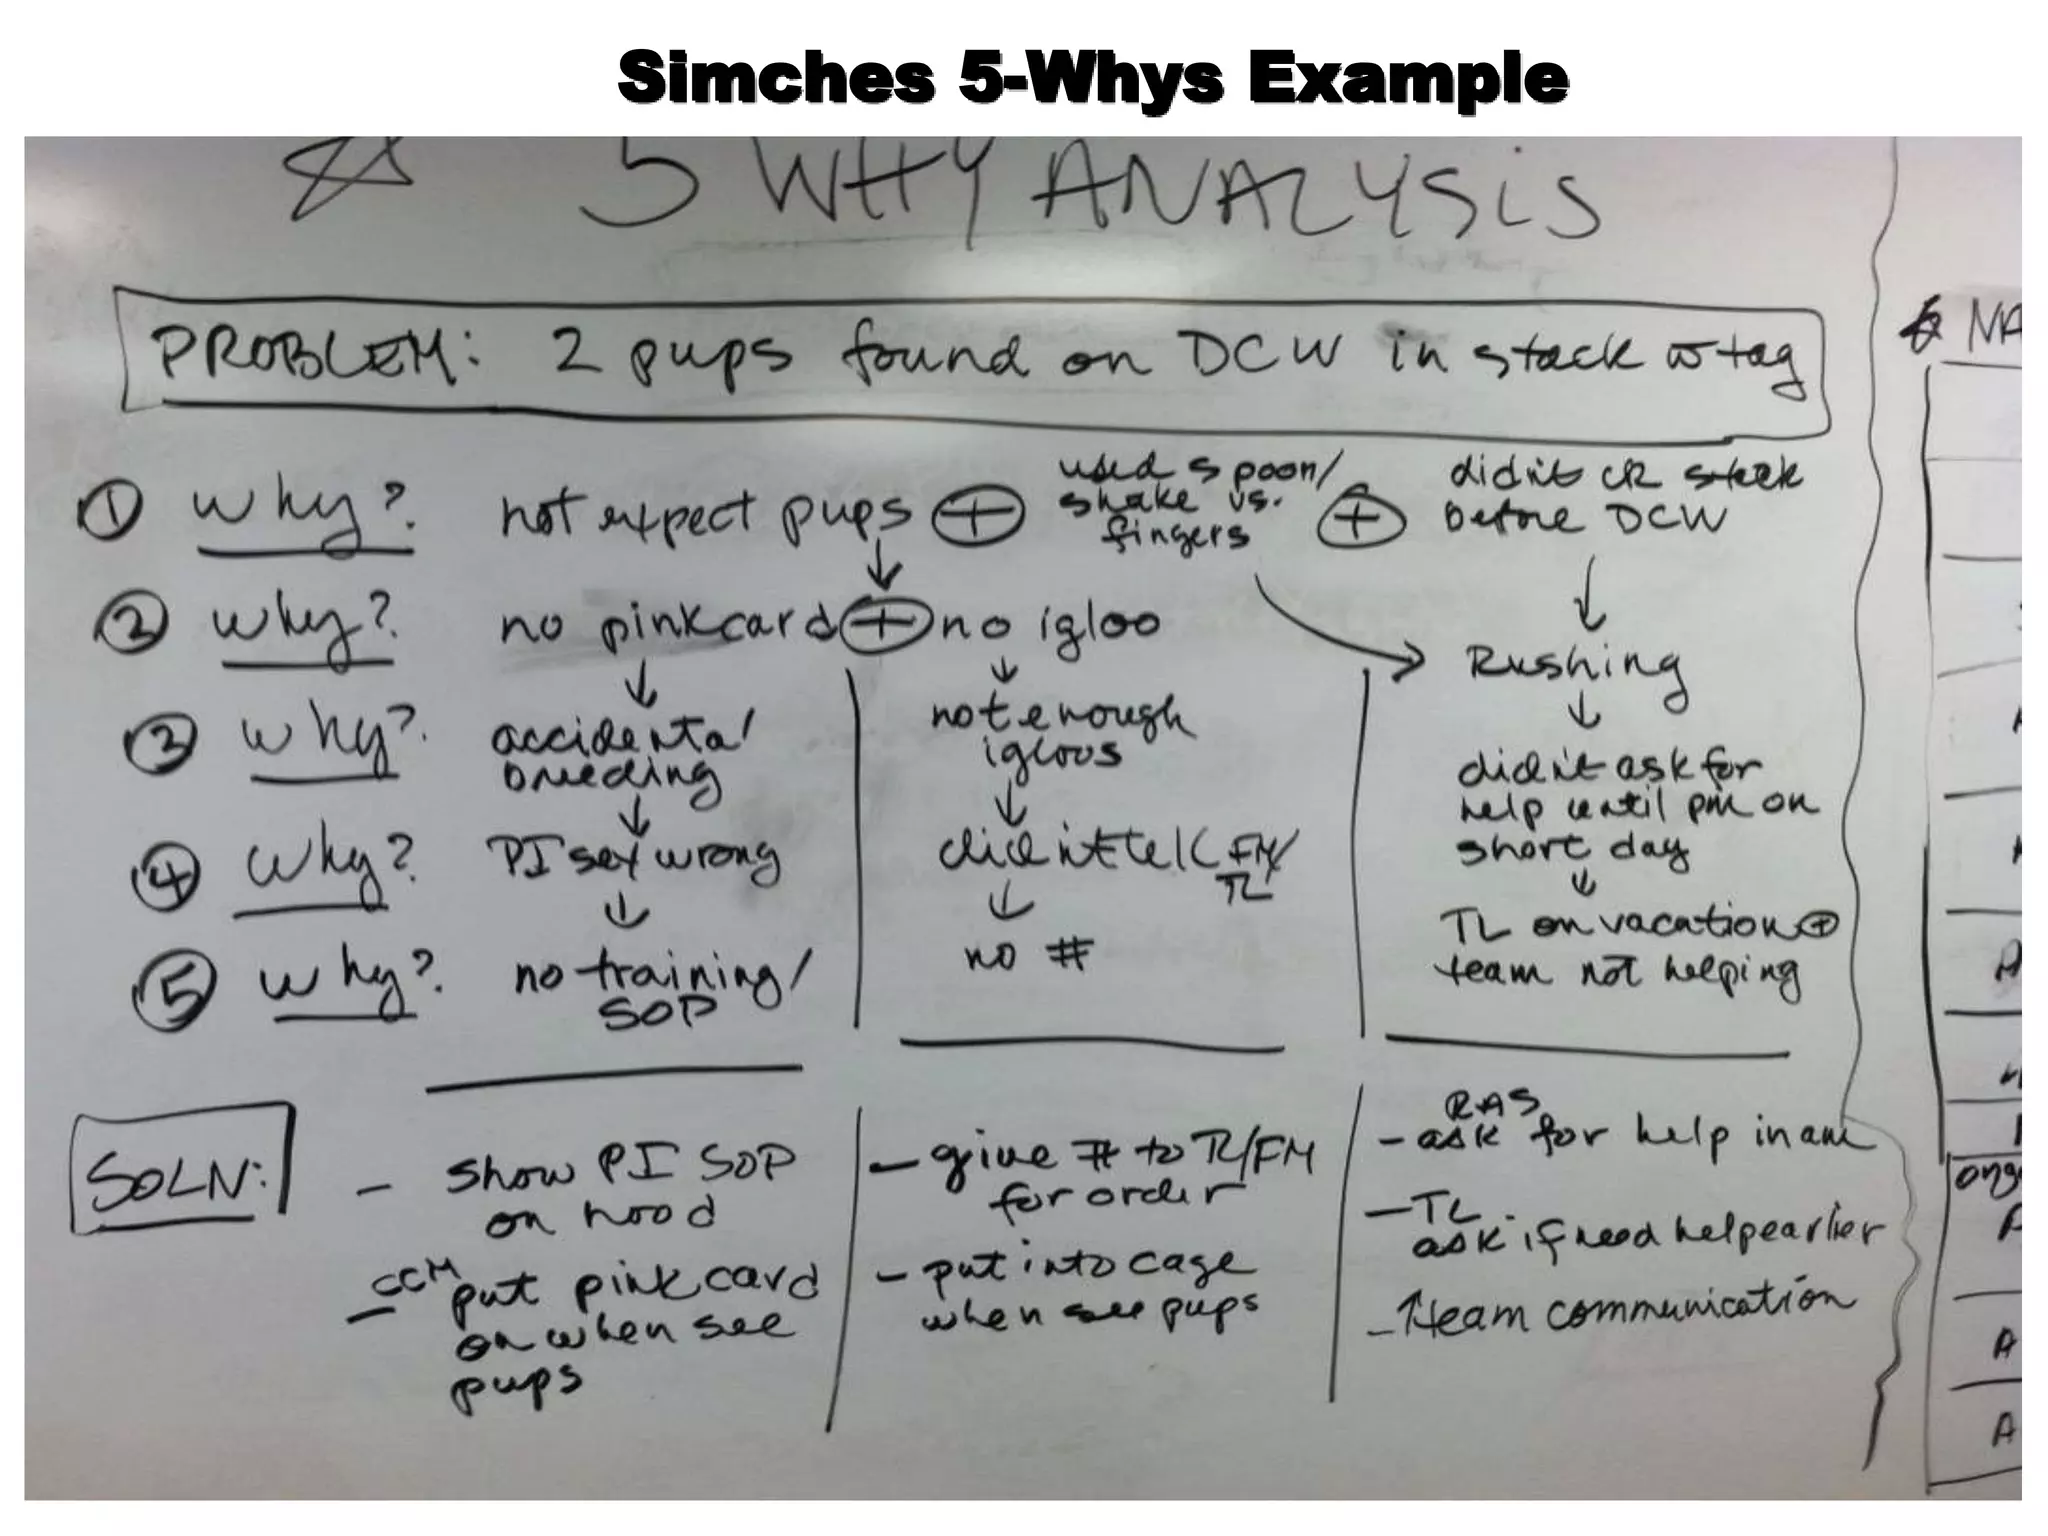 Simches 5-Whys Example
5 WHY ANALYSIS
PROBLEM: 2 pups found on DCW in stack w tag
① why? not expect pups ⊕ used spoon/ shake vs. fingers ⊕ didn't ck stack before DCW
② why? no pink card ⊕ no igloo
Rushing
③ why? accidental breeding
not enough igloos
didn't ask for help until pm on short day
④ why? PI sex wrong
didn't tell FM/ TL
TL on vacation ⊕ team not helping
⑤ why? no training/ SOP
no #
SOLN:
- show PI SOP
on hood
- CCM put pink card
on when see
pups
- give # to TL/FM
for order
- put into cage
when see pups
RAS
- ask for help in am
- TL
ask if need help earlier
- ↑ team communication
NA
A
A